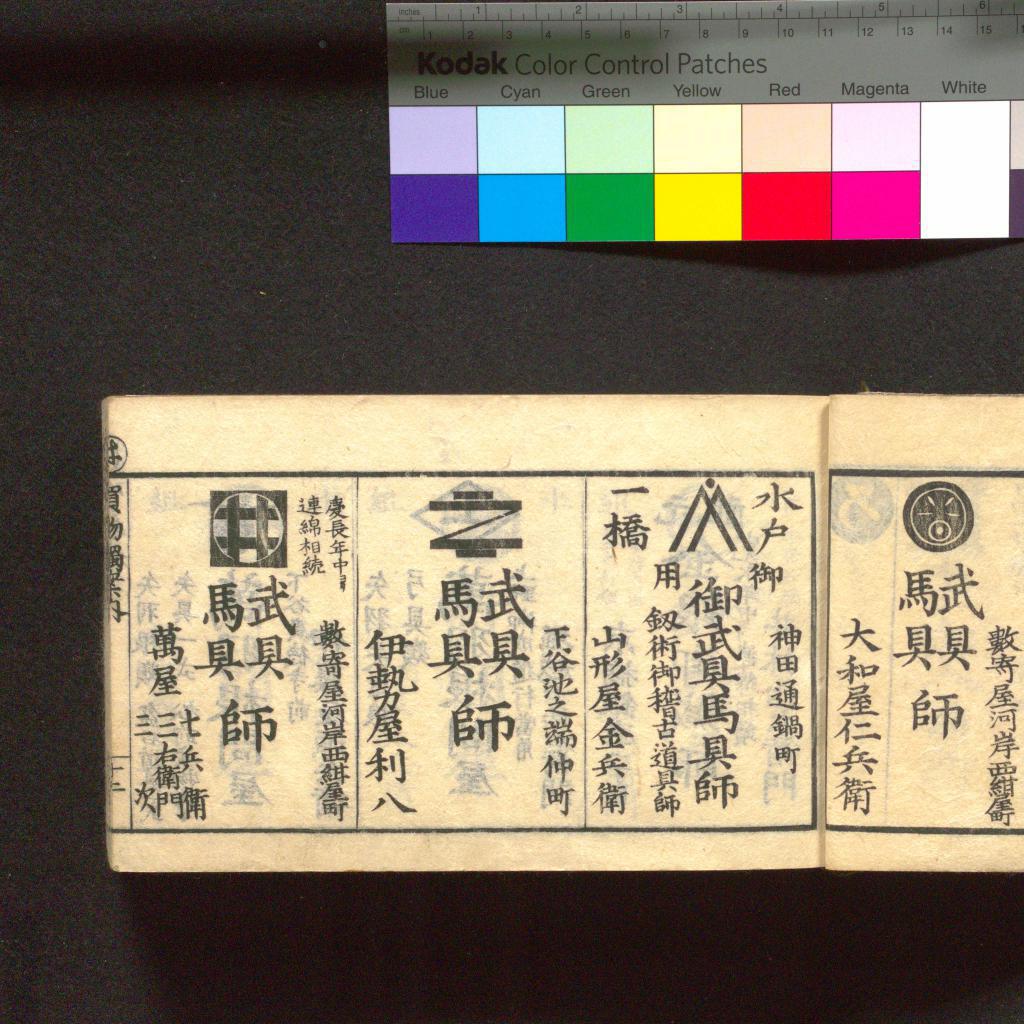 inches 1 2 3 4 5 6
cm 1 2 3 4 5 6 7 8 9 10 11 12 13 14 15
Kodak Color Control Patches
Blue Cyan Green Yellow Red Magenta White
數寄屋河岸西紺屋町
武具
馬具
師
大和屋仁兵衛
水戸
御
一橋
用
神田通鍋町
御武具馬具師
釼術御稽古道具師
山形屋金兵衛
下谷池之端仲町
武具
馬具
師
伊勢屋利八
慶長年中ヨリ
連綿相続
數寄屋河岸西紺屋町
武具
馬具
師
萬屋
七兵衛
三右衛門
三次
は
買物獨案内
十三